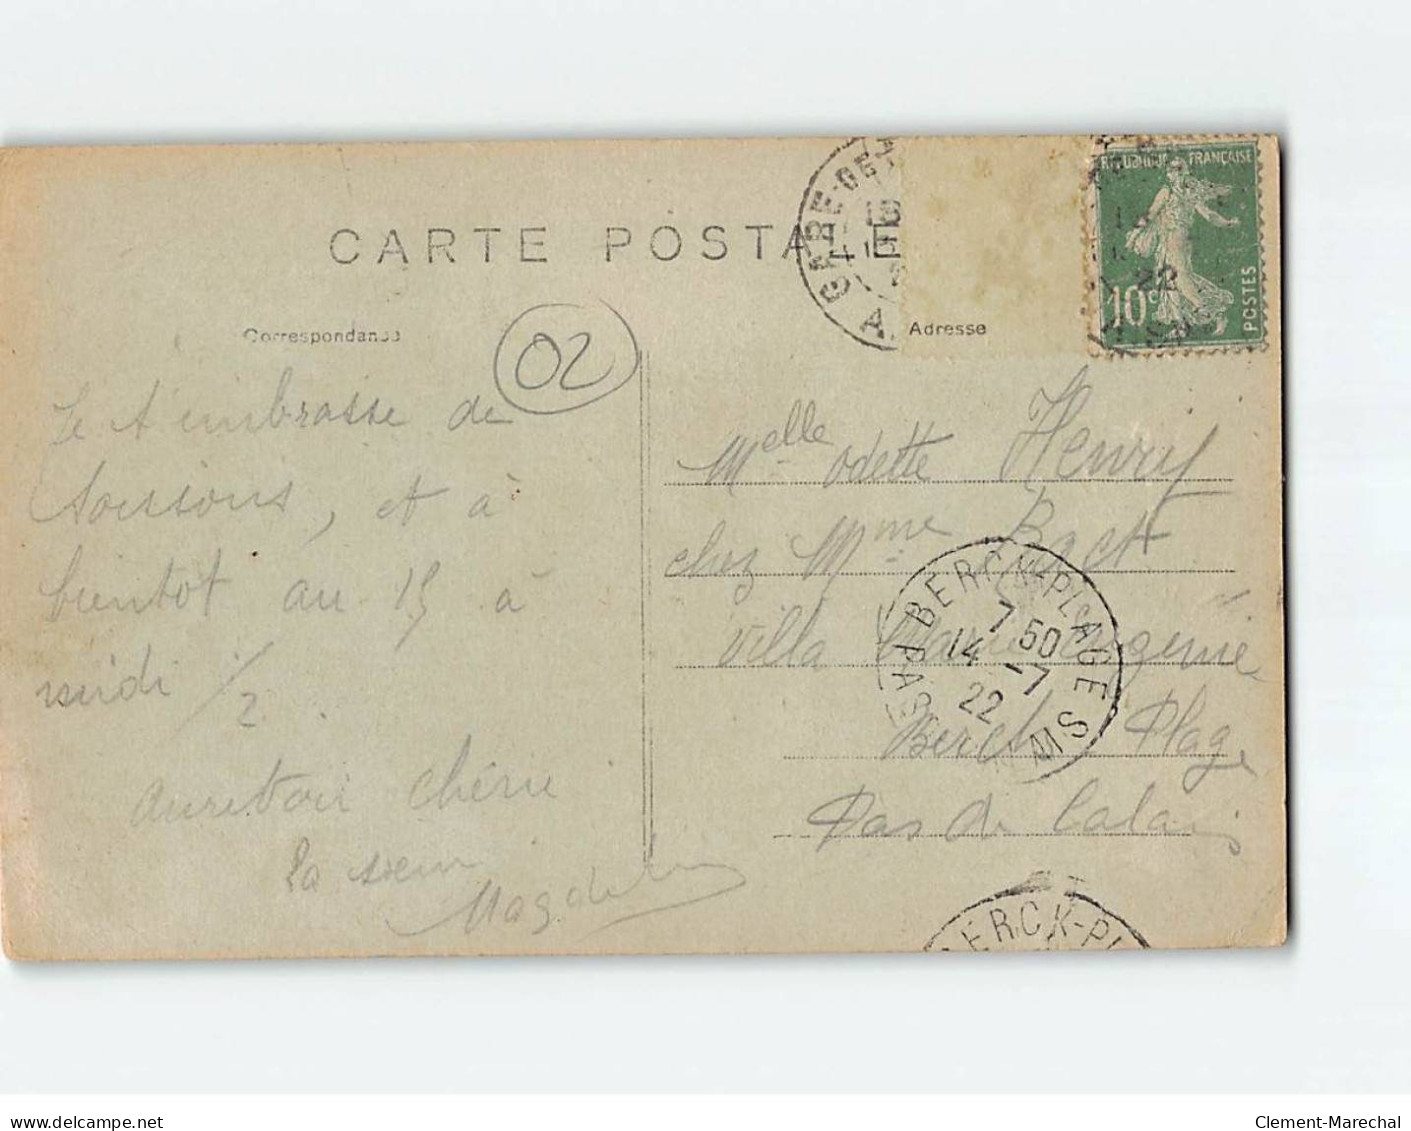 CARTE POSTALE
Correspondance
02
Adresse
RÉPUBLIQUE FRANÇAISE
10c
POSTES
22
GARE-DE
A.
Je t'embrasse de
Soissons, et à
bientôt au 15 à
midi 1/2.
Aurevoir chérie
Ta sœur
Magdeleine
Melle Odette Henry
chez Mme Bact
Villa Marie Eugénie
Berck Plage
Pas de Calais
BERCK-PLAGE
7 50
14 -7
22
BERCK-PL
www.delcampe.net
Clement-Marechal